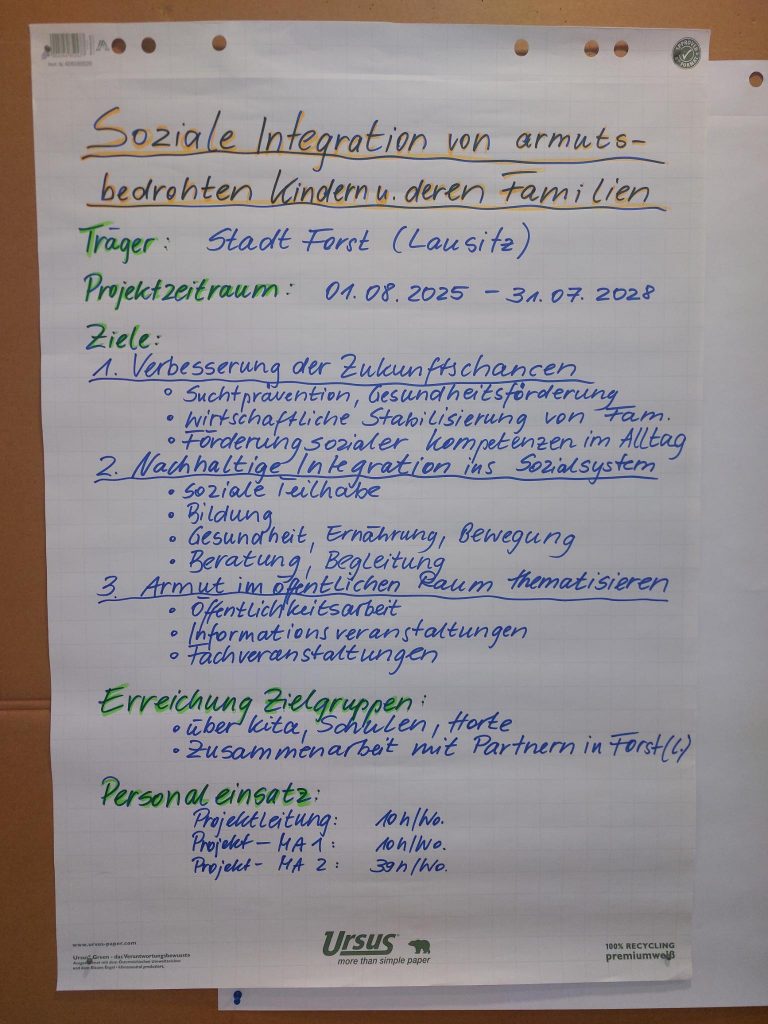 Soziale Integration von armuts-
bedrohten Kindern u. deren Familien
Träger: Stadt Forst (Lausitz)
Projektzeitraum: 01.08.2025 – 31.07.2028
Ziele:
1. Verbesserung der Zukunftschancen
• Suchtprävention, Gesundheitsförderung
• wirtschaftliche Stabilisierung von Fam.
• Förderung sozialer Kompetenzen im Alltag
2. Nachhaltige Integration ins Sozialsystem
• soziale Teilhabe
• Bildung
• Gesundheit, Ernährung, Bewegung
• Beratung, Begleitung
3. Armut im öffentlichen Raum thematisieren
• Öffentlichkeitsarbeit
• Informationsveranstaltungen
• Fachveranstaltungen
Erreichung Zielgruppen:
• über Kita, Schulen, Horte
• Zusammenarbeit mit Partnern in Forst (L.)
Personaleinsatz:
Projektleitung: 10h/Wo.
Projekt – MA 1: 10h/Wo.
Projekt – MA 2: 39h/Wo.
www.ursus-paper.com
Ursus Green - das Verantwortungsbewusste
Ursus
more than simple paper
100% RECYCLING
premiumweiß